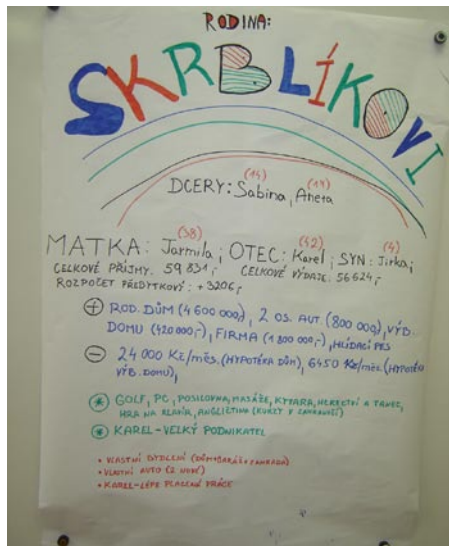 RODINA:
SKRBLÍKOVI
(14) (14)
DCERY: Sabina, Aneta
(38) (42) (4)
MATKA: Jarmila; OTEC: Karel; SYN: Jirka;
CELKOVÉ PŘÍJMY: 59 831,- CELKOVÉ VÝDAJE: 56 624,-
ROZPOČET PŘEBYTKOVÝ: +3206,-
+ ROD. DŮM (4 600 000,-), 2 OS. AUT. (800 000,-), VÝB.
DOMU (420 000,-), FIRMA (1 800 000,-), HLÍDACÍ PES
- 24 000 Kč/MĚS. (HYPOTÉKA DŮM), 6450 Kč/MĚS. (HYPOTÉKA
VÝB. DOMU),
* GOLF, PC, POSILOVNA, MASÁŽE, KYTARA, HERECTVÍ A TANEC,
HRA NA KLAVÍR, ANGLIČTINA (KURZY V ZAHRANIČÍ)
* KAREL-VELKÝ PODNIKATEL
• VLASTNÍ BYDLENÍ (DŮM+GARÁŽ+ZAHRADA)
• VLASTNÍ AUTO (2 NOVÉ)
• KAREL-LÉPE PLACENÁ PRÁCE